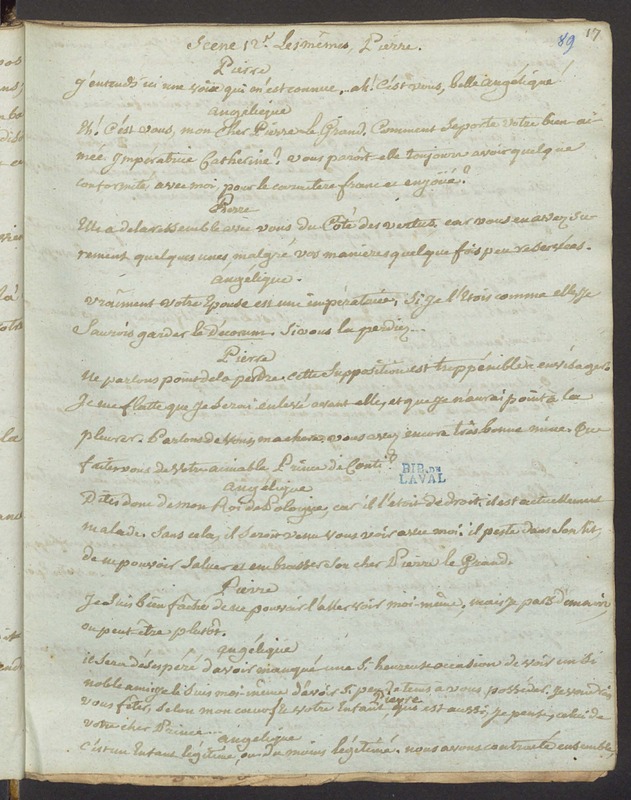 17
89
Scene 12e. Les mêmes, Pierre.
Pierre
J'entends ici une voix qui m'est connue. ah! C'est vous, belle angélique!
angélique
Eh! C'est vous, mon cher Pierre-le-Grand. Comment se porte votre bien-ai-
mée Impératrice Catherine? vous paroit-elle toujours avoir quelque
conformité avec moi, pour le caractere franc et enjoüé?
Pierre
Elle a de la ressemblance avec vous du Côté des vertus, car vous en avez su-
rement quelques unes, malgré vos manieres quelque fois peu
angélique.
vraiment votre Epouse est une impératrice; Si je l'etois comme elle, je
Saurois garder le Décorum. Si vous la perdiez...
Pierre
Ne parlons point de la perdre. cette Supposition est trop pénible à envisager.
Je me flatte que je Serai enlevé avant elle, et que je n'aurai point à la
pleurer. Parlons de vous, ma chere, vous avez encore très bonne mine. Que
faites vous de votre aimable Prince de Conti?
BIB. DE
LAVAL
angélique
Dites donc de mon Roi de Pologne, car il l'etoit de droit. il est actuellement
malade. Sans cela, il seroit venu vous voir avec moi. il peste dans Son lit,
de ne pouvoir Saluer et embrasser Son cher Pierre le Grand.
Pierre
Je Suis bien fâché de ne pouvoir l'aller voir moi-même, mais je pars demain,
ou peut être plutôt.
angélique
il Sera désespéré d'avoir manqué une Si heureuse occasion de voir un Si
noble ami. je le Suis moi-même d'avoir Si peu de tems a vous posséder.
vous fûtes, Selon mon coeur, votre Enfant,
Pierre
qui est aussi, je pense, celui de
votre cher Prince.
angélique
C'est un Enfant légitime, ou du moins légitimé. nous avons contracté ensemble